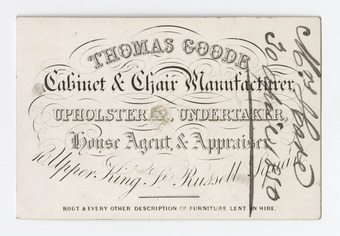 THOMAS GOODE
Cabinet & Chair Manufacturer,
UPHOLSTERER, UNDERTAKER,
House Agent & Appraiser,
10 Upper King St. Russell Square
ROUT & EVERY OTHER DESCRIPTION OF FURNITURE LENT ON HIRE.